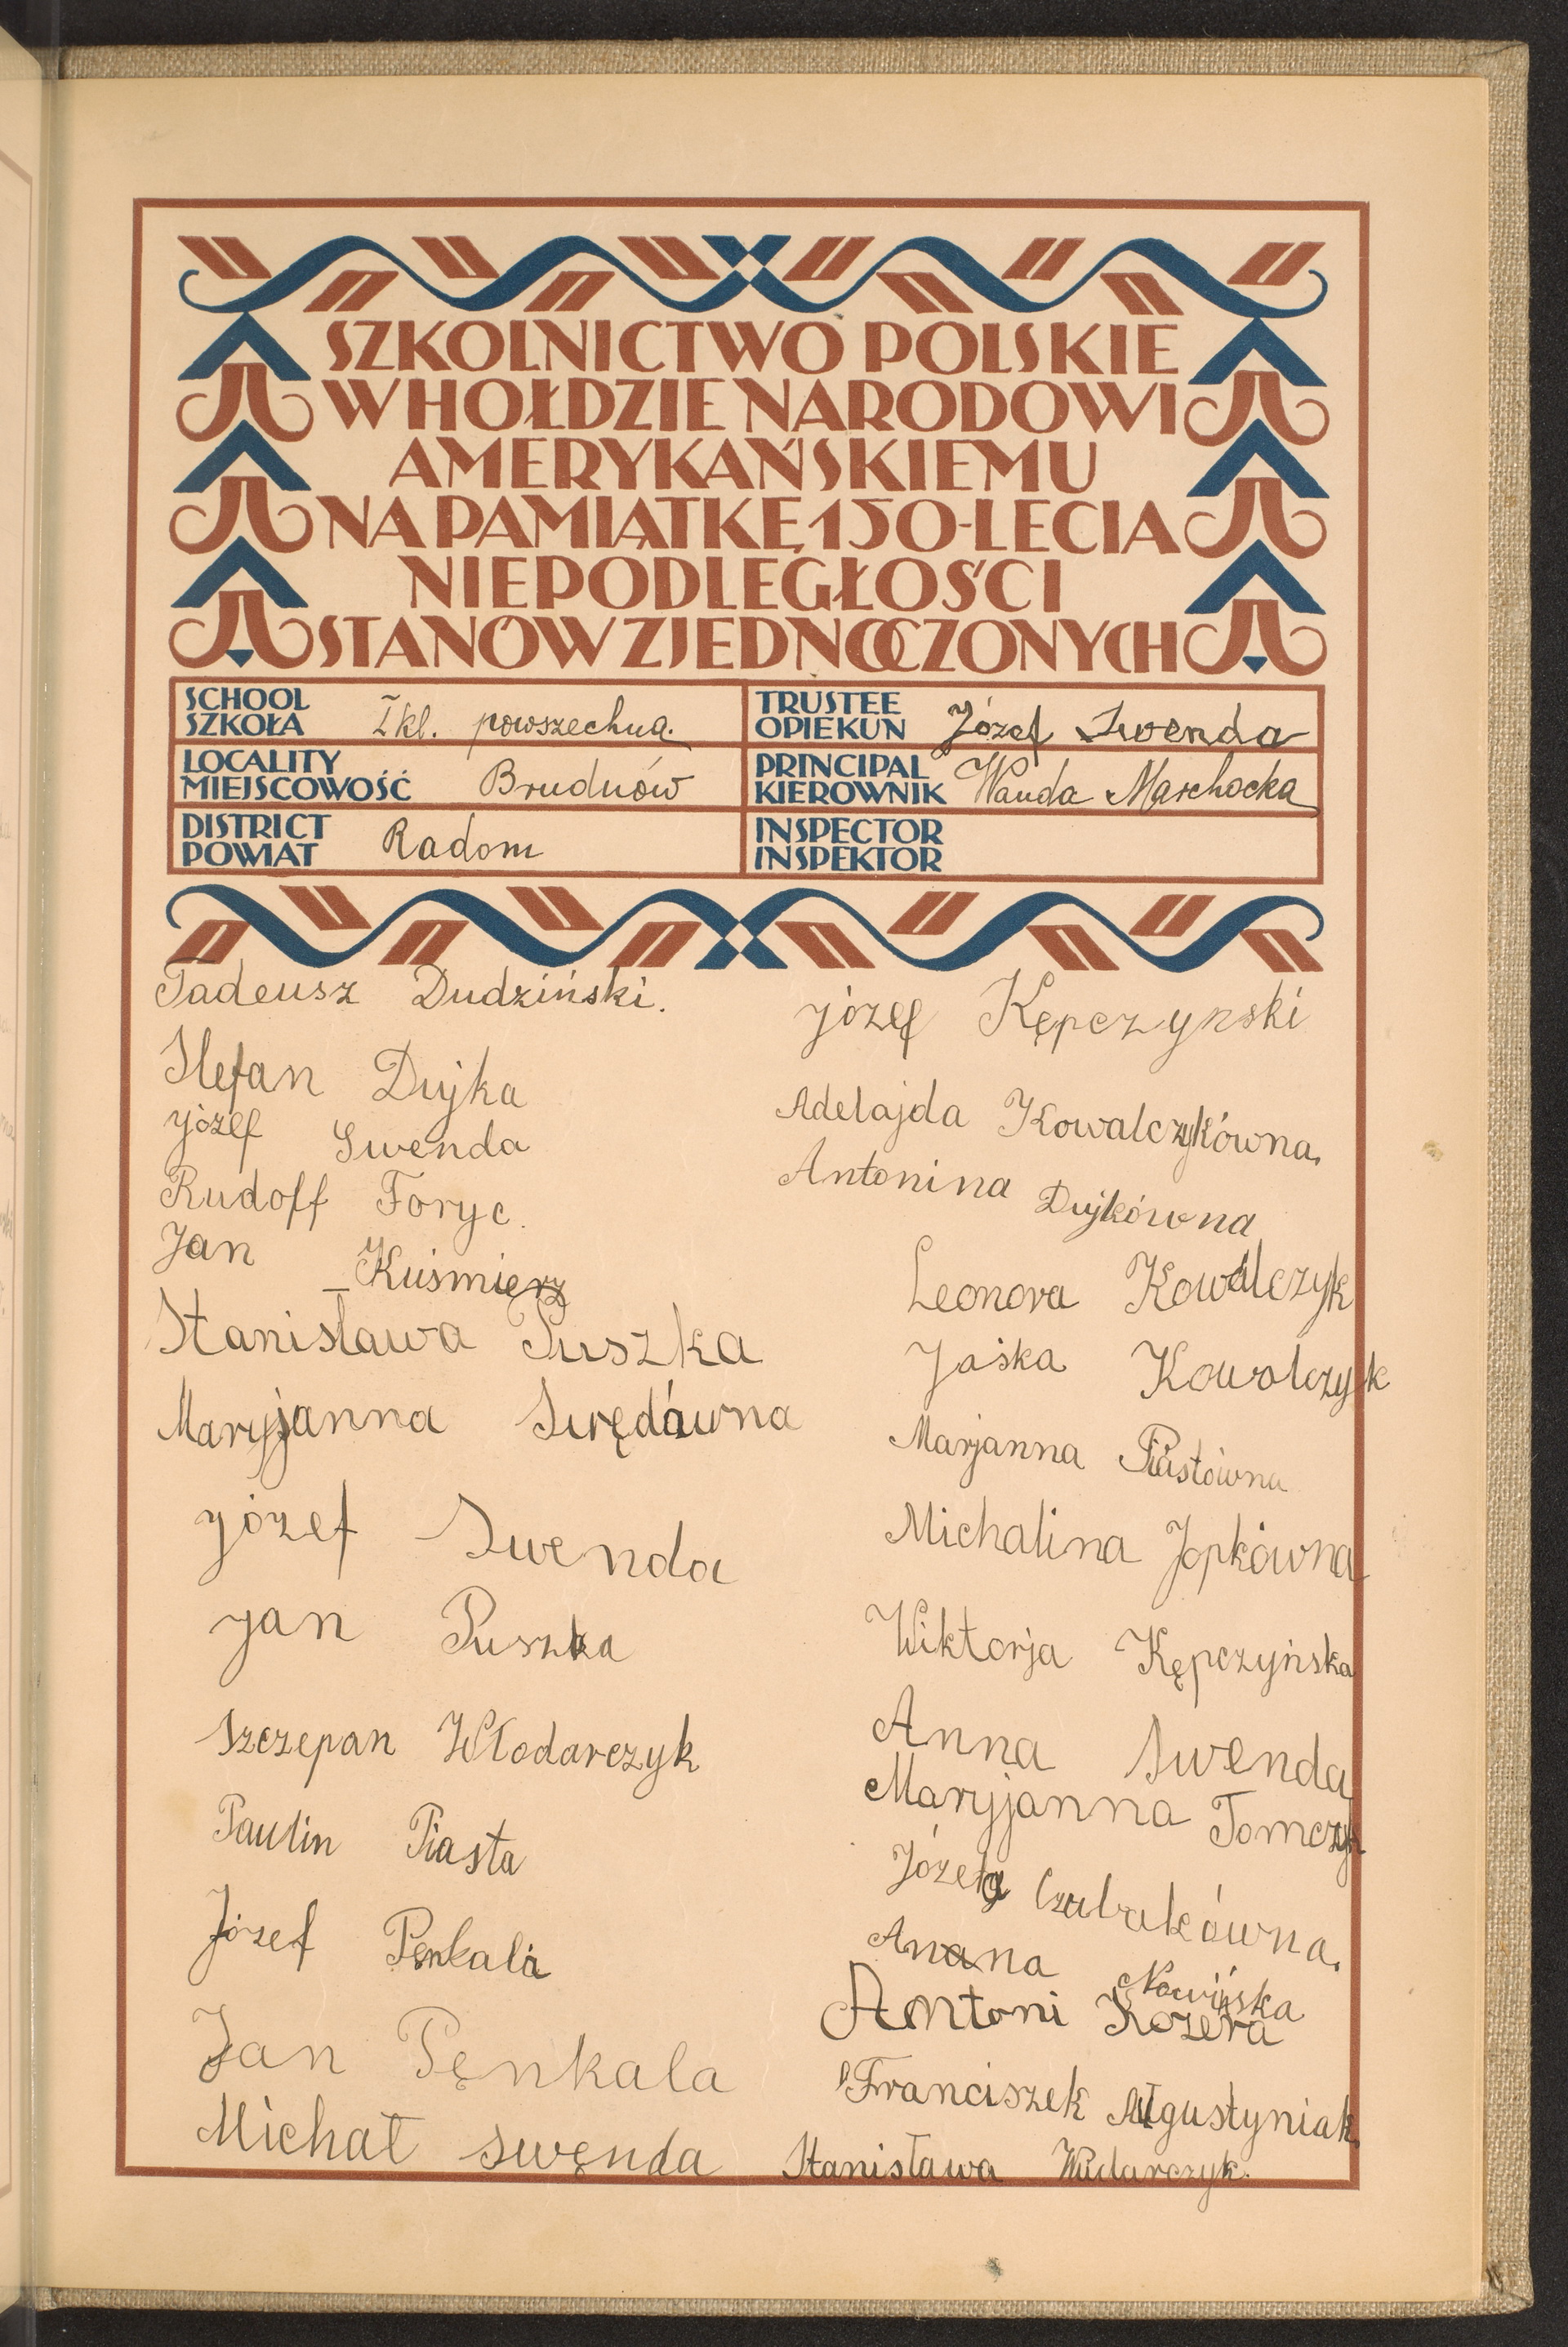 SZKOLNICTWO POLSKIE
W HOŁDZIE NARODOWI
AMERYKAŃSKIEMU
NA PAMIĄTKĘ 150-LECIA
NIEPODLEGŁOŚCI
STANÓW ZJEDNOCZONYCH
SCHOOL
SZKOŁA I kl. powszechna.
TRUSTEE
OPIEKUN Józef Swenda
LOCALITY
MIEJSCOWOŚĆ Brudnów
PRINCIPAL
KIEROWNIK Wanda Marchocka
DISTRICT
POWIAT Radom
INSPECTOR
INSPEKTOR
Tadeusz Dudziński.
Stefan Dujka
józef Swenda
Rudolf Foryc.
Jan Kuśmierz
Stanisława Puszka
Maryjanna
józef Swenda
jan Puszka
Szczepan Włodarczyk
Paulin Piasta
Józef Penkala
Jan Pęnkala
Michał Swęnda
józef Kępczynski
Adelajda Kowalczykówna.
Antonina Dujkówna
Leonora Kowalczyk
Jaśka Kowalczyk
Marjanna Piastówna
Michalina Jopkówna
Wiktorja Kępczyńska
Anna Swenda
Maryjanna Tomczyk
Józefa
Nowińska
Antoni Kozera
Franciszek Augustyniak.
Stanisława Wudarczyk.